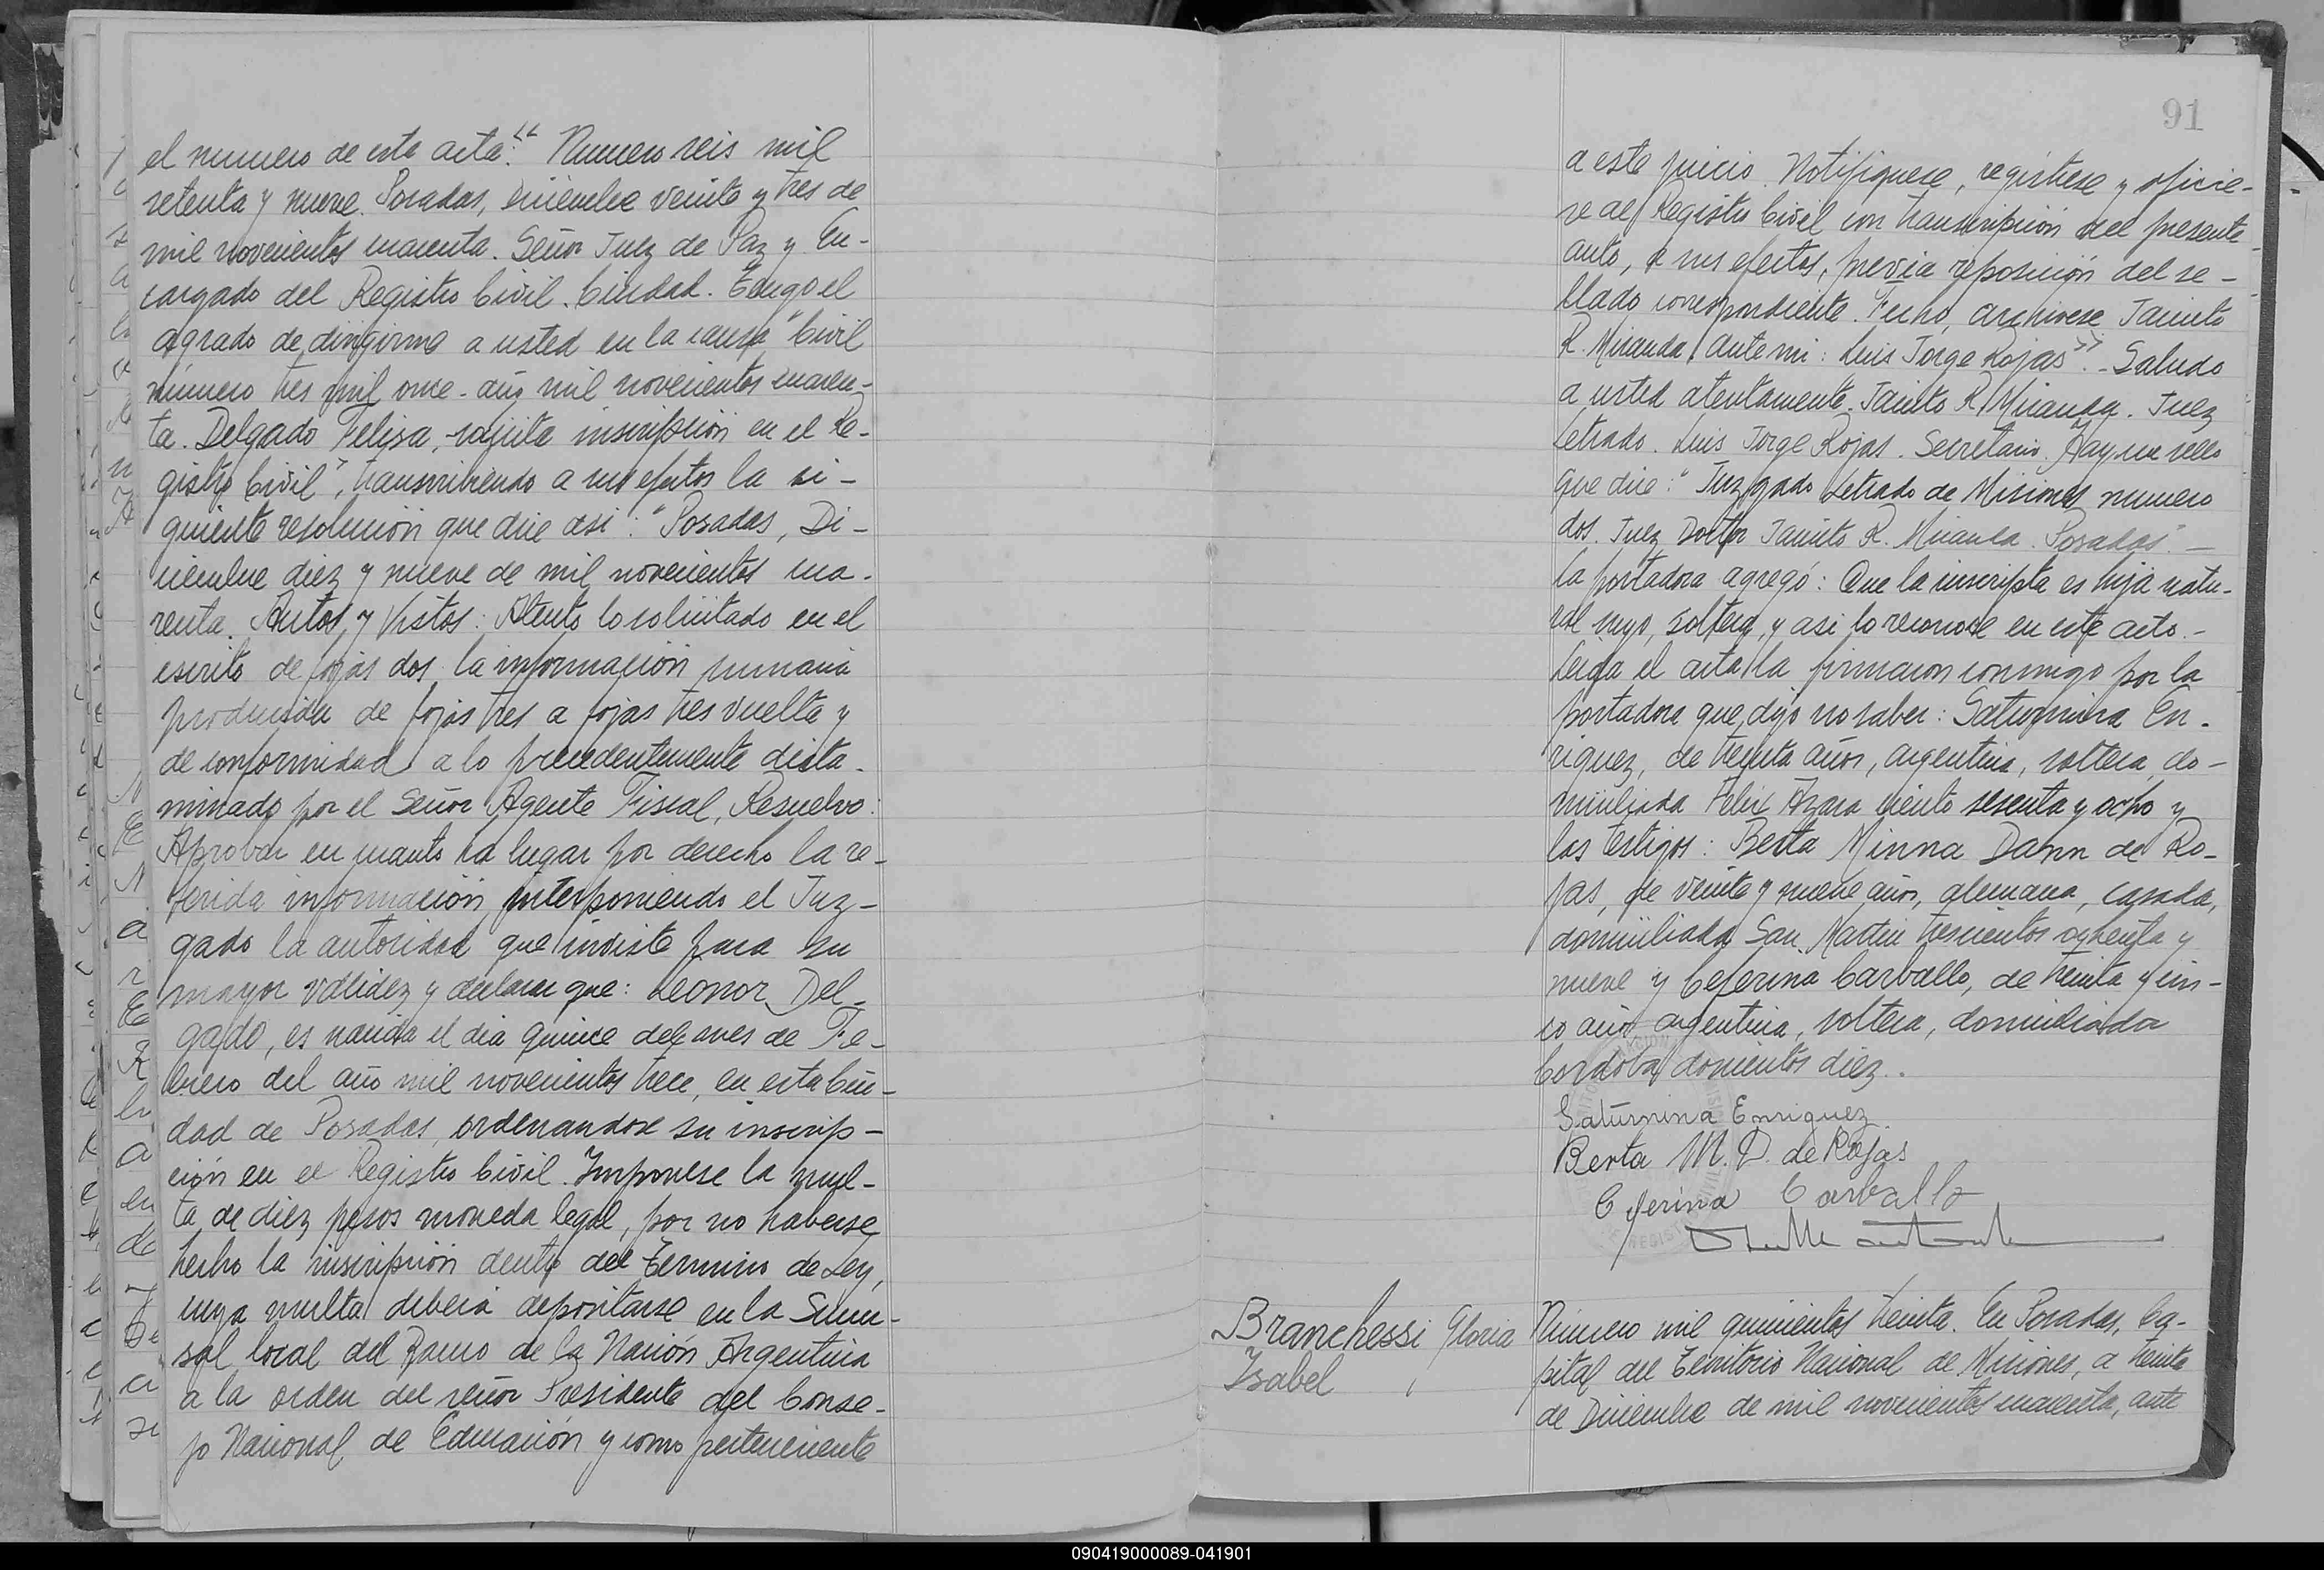 el numero de esta acta: “ Numero seis mil
setenta y nueve. Posadas, Diciembre veinte y tres de
mil novecientos cuarenta. Señor Juez de Paz y En-
cargado del Registro Civil. Ciudad. Tengo el
agrado de dirigirme a usted en la causa "Civil
número tres mil once - año mil novecientos cuaren-
ta. Delgado Felisa, solicita inscripción en el Re-
gistro Civil", transcribiendo a sus efectos la si-
guiente resolución que dice asi: "Posadas, Di-
ciembre diez y nueve de mil novecientos cua-
renta. Autos y Vistos: Atento lo solicitado en el
escrito de fojas dos, la información sumaria
producida de fojas tres a fojas tres vuelta y
de conformidad a lo precedentemente dicta-
minado por el Señor Agente Fiscal, Resuelvo:
Aprobar en cuanto ha lugar por derecho la re-
ferida información, interponiendo el Juz-
gado la autoridad que inviste para su
mayor validez y declarar que: Leonor Del-
gado, es nacida el dia quince del mes de Fe-
brero del año mil novecientos trece, en esta Ciu-
dad de Posadas, ordenandose su inscrip-
ción en el Registro Civil. Imponese la mul-
ta de diez pesos moneda legal, por no haberse
hecho la inscripción dentro del termino de Ley,
cuya multa deberá depositarse en la Sucur-
sal local del Banco de la Nación Argentina
a la orden del señor Presidente del Conse-
jo Nacional de Educación y como perteneciente
91
a este juicio. Notifiquese, registrese y oficie-
se al Registro Civil con transcripción del presente
auto, a sus efectos, previa reposición del se-
llado correspondiente. Fecho, archivese. Jacinto
R. Miranda. Ante mi: Luis Jorge Rojas”.- Saludo
a usted atentamente. Jacinto R. Miranda. Juez
Letrado. Luis Jorge Rojas. Secretario. Hay un sello
que dice: "Juzgado Letrado de Misiones numero
dos. Juez Doctor Jacinto R. Miranda. Posadas".-
La portadora agregó: Que la inscripta es hija natu-
ral suya, soltera, y asi lo reconoce en este acto.-
Leida el acta la firmaron conmigo por la
portadora que dijo no saber: Saturnina En-
riquez, de treinta años, argentina, soltera, do-
miciliada Felix Azara ciento sesenta y ocho y
los testigos: Berta Minna Dann de Ro-
jas, de veinte y nueve años, alemana, casada,
domiciliada San Martin trescientos ochenta y
nueve y Ceferina Carvallo, de treinta y cin-
co años argentina, soltera, domiciliada
Cordoba doscientos diez.
Saturnina Enriquez
Berta M. D. de Rojas
Ceferina Carvallo
Branchessi Gloria
Isabel
Número mil quinientos treinta. En Posadas, Ca-
pital del Territorio Nacional de Misiones, a treinta
de Diciembre de mil novecientos cuarenta, ante
090419000089-041901